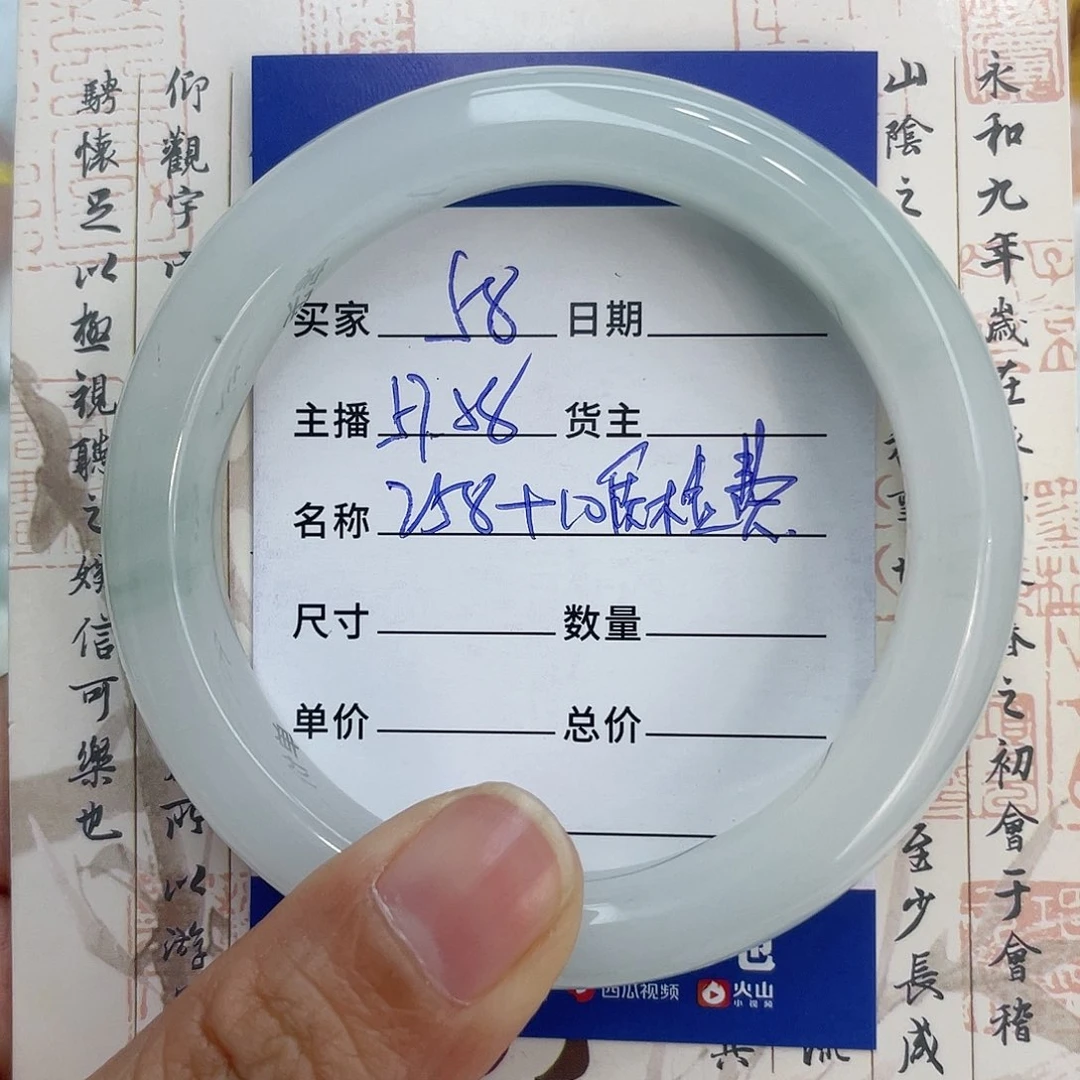 买家 58 日期
主播 57.88 货主
名称 258+10质检费
尺寸 数量
单价 总价
西瓜视频 火山
小视频
永和九年歲在
山陰之
至少長咸
初會于會稽
仰觀宇
所以游
騁懷
足以極視聽之
信可樂也